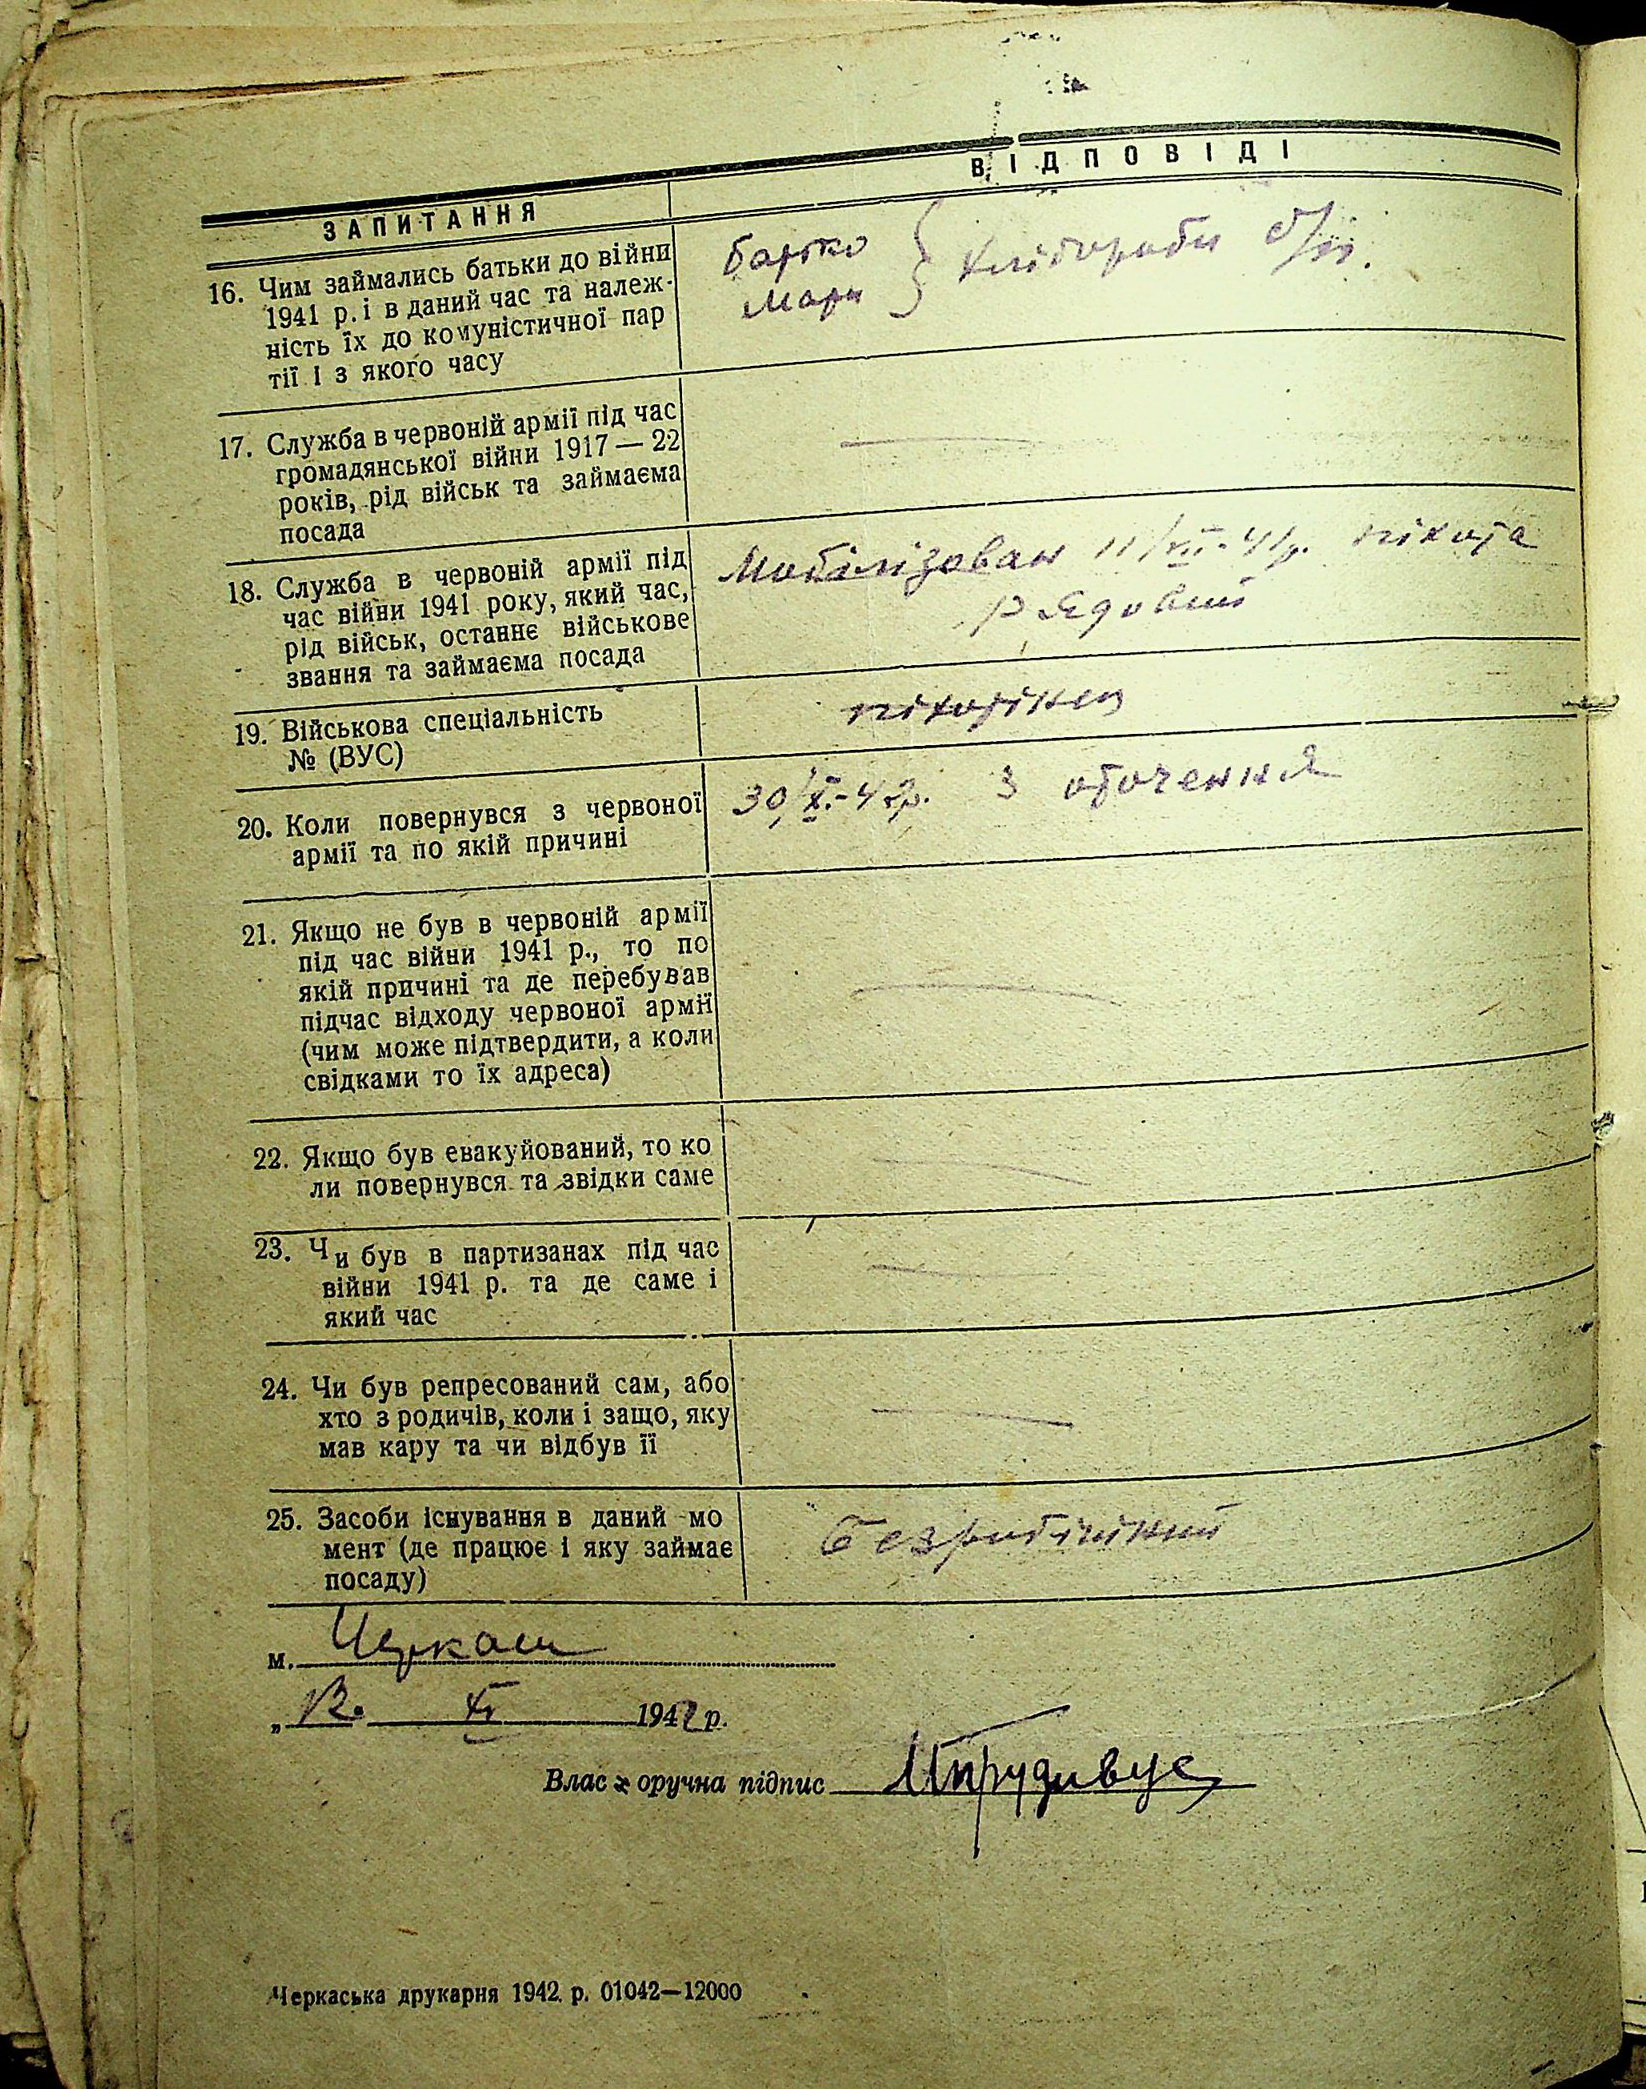 ЗАПИТАННЯ
ВІДПОВІДІ
16. Чим займались батьки до війни
1941 р. і в даний час та належ-
ність їх до комуністичної пар
тії і з якого часу
Батько
Мати
хлібороби б/п.
17. Служба в червоній армії під час
громадянської війни 1917 — 22
років, рід військ та займаєма
посада
18. Служба в червоній армії під
час війни 1941 року, який час,
рід військ, останнє військове
звання та займаєма посада
Мобілізован 11/VII-41р. піхота
рядовий
19. Військова спеціальність
№ (ВУС)
піхотінец
20. Коли повернувся з червоної
армії та по якій причині
30/X.-42р. З оточення
21. Якщо не був в червоній армії
під час війни 1941 р., то по
якій причині та де перебував
підчас відходу червоної армії
(чим може підтвердити, а коли
свідками то їх адреса)
22. Якщо був евакуйований, то ко
ли повернувся та звідки саме
23. Чи був в партизанах під час
війни 1941 р. та де саме і
який час
24. Чи був репресований сам, або
хто з родичів, коли і защо, яку
мав кару та чи відбув її
25. Засоби існування в даний мо
мент (де працює і яку займає
посаду)
безробітний
м. Черкаси
„ 12. XI 1942 р.
Власоручна підпис
Черкаська друкарня 1942 р. 01042—12000